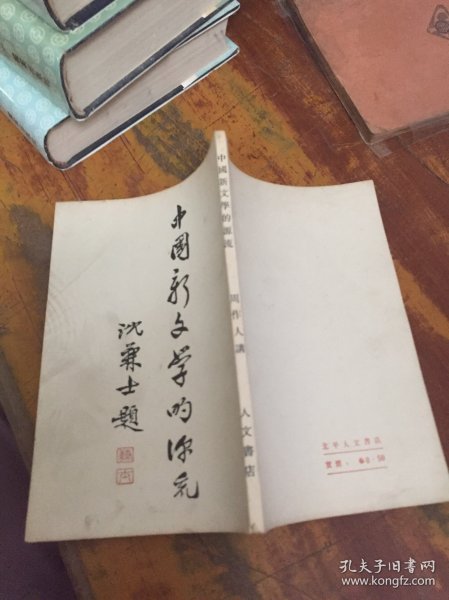 中國新文學的源流
沈兼士題
中國新文學的源流
周作人講
人文書店
北平人文書店
實價：
孔夫子旧书网
www.kongfz.com